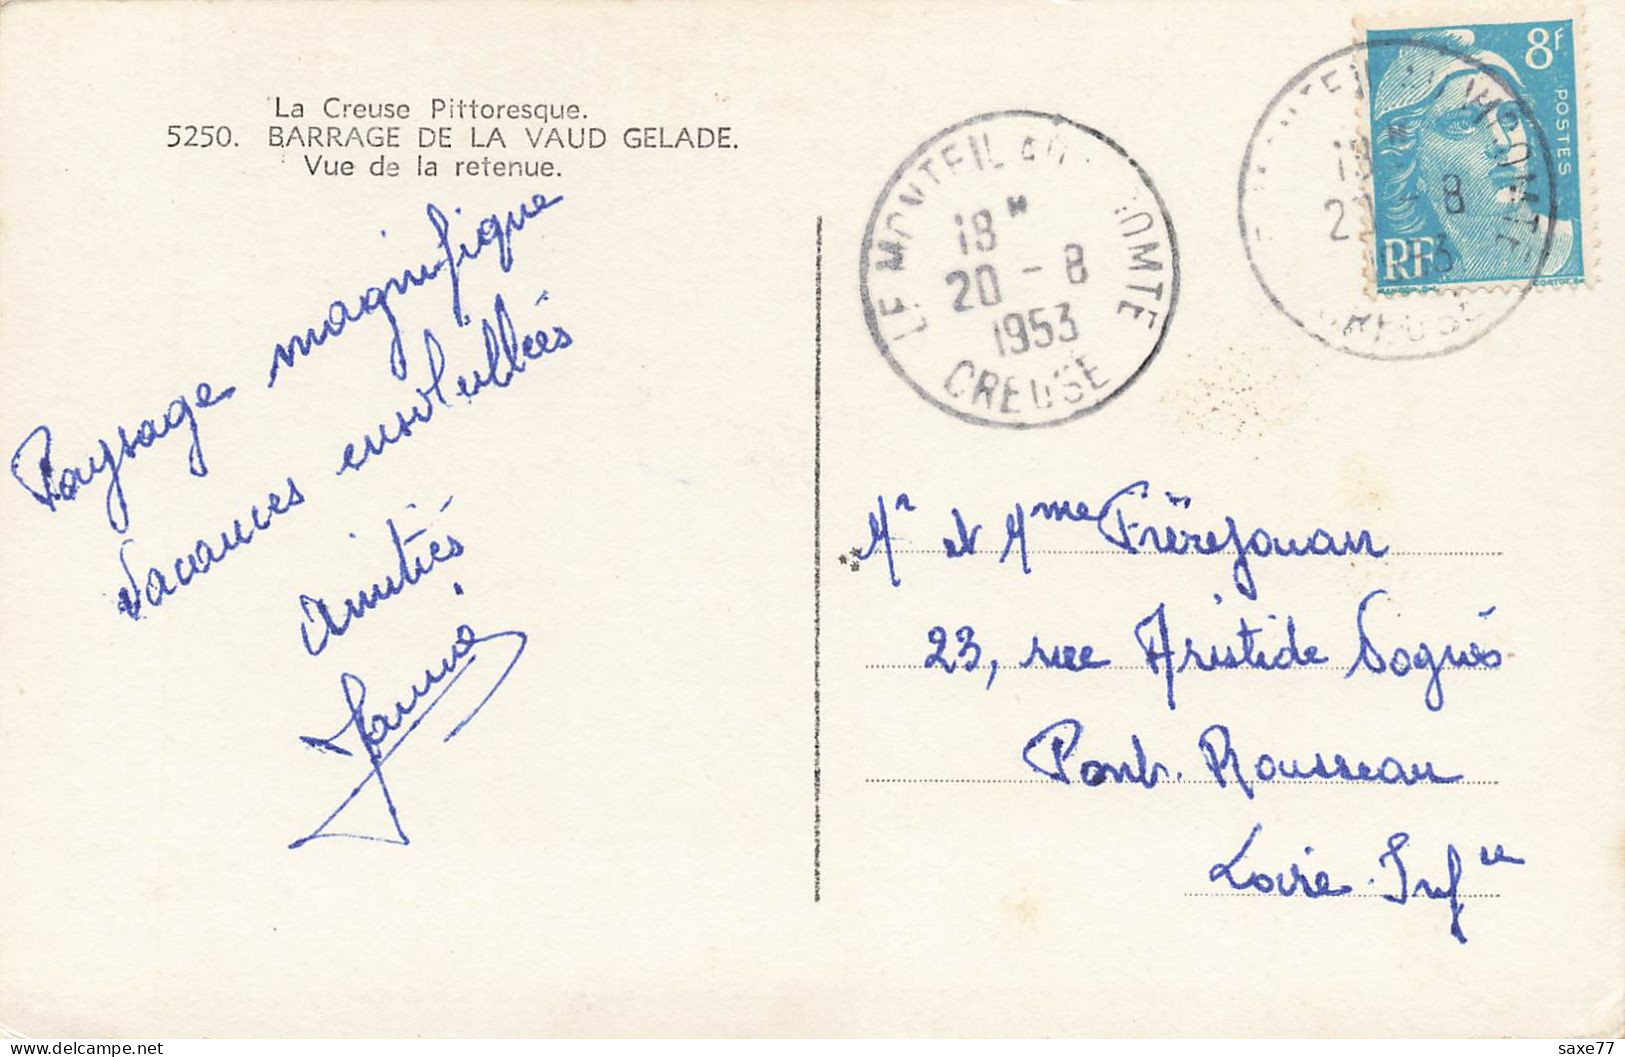 La Creuse Pittoresque.
5250. BARRAGE DE LA VAUD GELADE.
Vue de la retenue.
Paysage magnifique
Vacances ensoleillées
Amitiés
LE MONTEIL AU VICOMTE
18 H
20 - 8
1953
CREUSE
8F
POSTES
RF
Mr et Mme Frèrejouan
23, rue Aristide
Pont. Rousseau
Loire Infre
saxe77